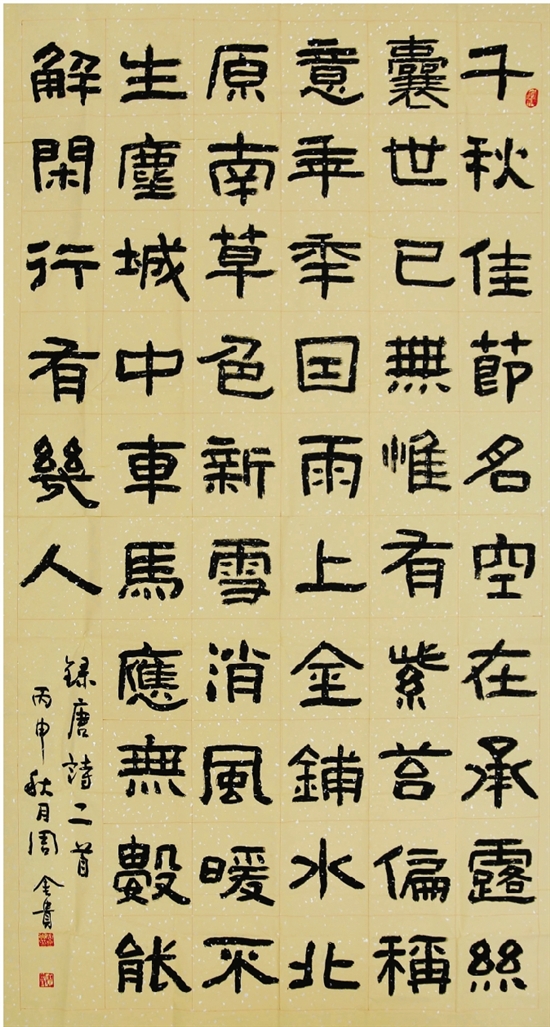 千秋佳節名空在承露絲
囊世已無惟有紫苔偏稱
意年年因雨上金鋪水北
原南草色新雪消風暖不
生塵城中車馬應無數能
解閑行有幾人
録唐詩二首
丙申秋月周金貴